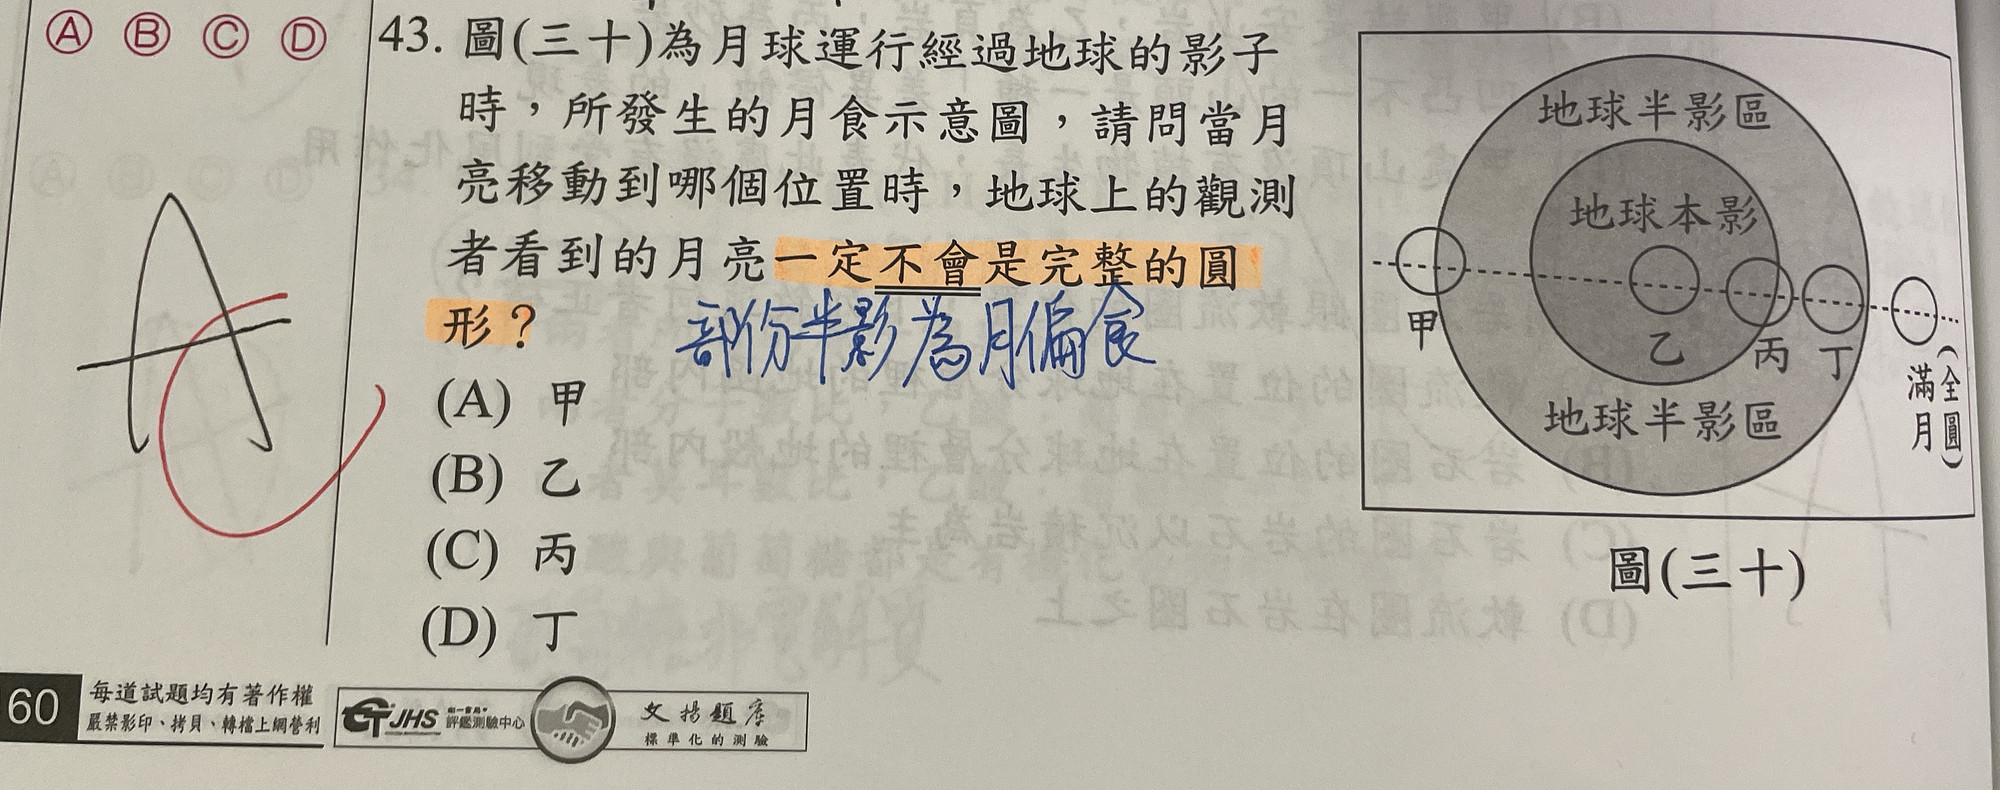 Ⓐ Ⓑ Ⓒ Ⓓ
43. 圖(三十)為月球運行經過地球的影子
時，所發生的月食示意圖，請問當月
亮移動到哪個位置時，地球上的觀測
者看到的月亮一定不會是完整的圓
形？
部份半影為月偏食
(A) 甲
(B) 乙
(C) 丙
(D) 丁
A
地球半影區
地球本影
甲
乙
丙
丁
滿月
(全圓)
地球半影區
圖(三十)
60
每道試題均有著作權
嚴禁影印、拷貝、轉檔上網營利
JHS
評鑑測驗中心
文揚題庫
標準化的測驗